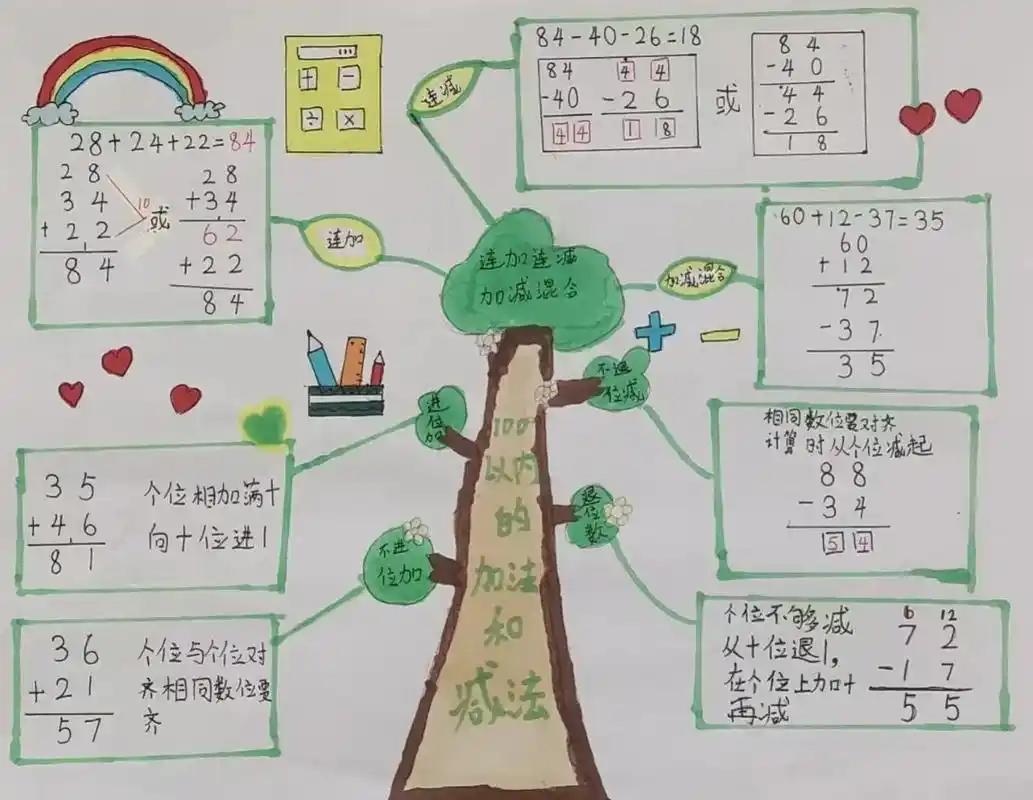 28+24+22=84
28
34
+22
84
10
或
28
+34
62
+22
84
连加
+ −
÷ ×
连减
84-40-26=18
84
-40
44
44
-26
118
或
84
-40
44
-26
18
连加连减
加减混合
加减混合
60+12-37=35
60
+12
72
-37
35
进
位
加
35
+46
81
个位相加满十
向十位进1
不进
位加
36
+21
57
个位与个位对
齐相同数位要
齐
不退
位减
相同数位要对齐
计算时从个位减起
88
-34
54
退
位
数
个位不够减
从十位退1,
在个位上加十
再减
6 12
72
-17
55
100
以内
的
加法
和
减法